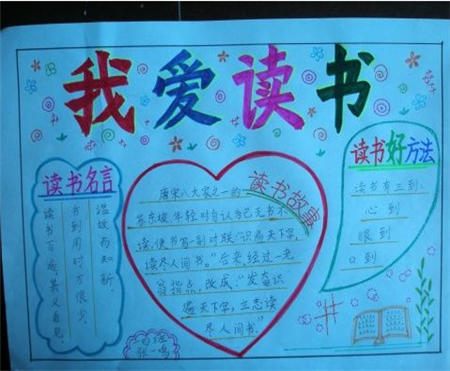 我爱读书
读书名言
温故而知新。
书到用时方恨少。
读书百遍，其义自见。
读书故事
唐宋八大家之一的
苏东坡，年轻时自认为已无书不
读，便书写一副对联：“识遍天下字，
读尽人间书。”后来经过一老
翁指点，改成：“发奋识
遍天下字，立志读
尽人间书。”
读书好方法
读书有三到：
心到
眼到
口到